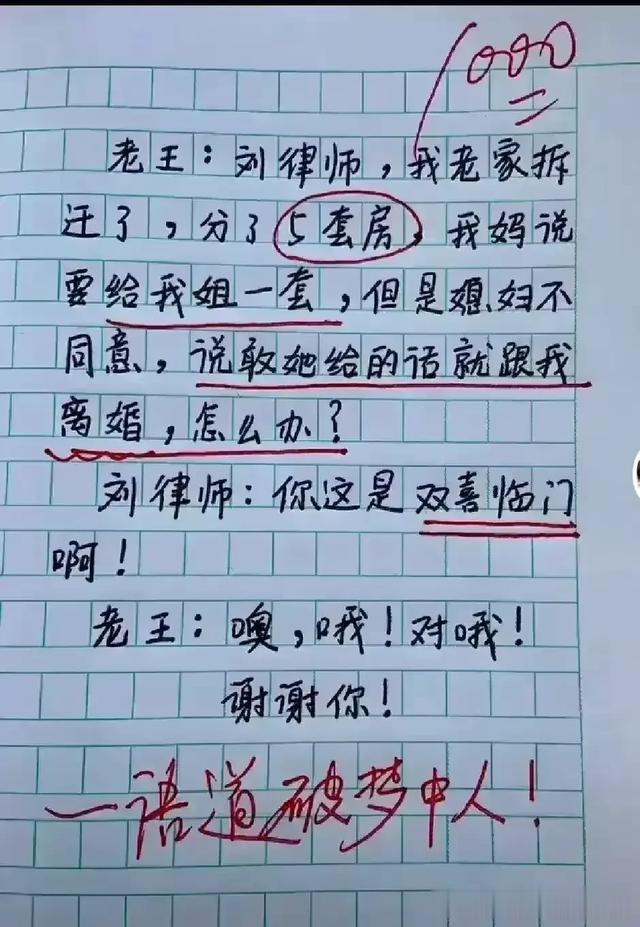 1000
老王：刘律师，我老家拆
迁了，分了5套房，我妈说
要给我姐一套，但是媳妇不
同意，说敢她给的话就跟我
离婚，怎么办？
刘律师：你这是双喜临门
啊！
老王：噢，哦！对哦！
谢谢你！
一语道破梦中人！